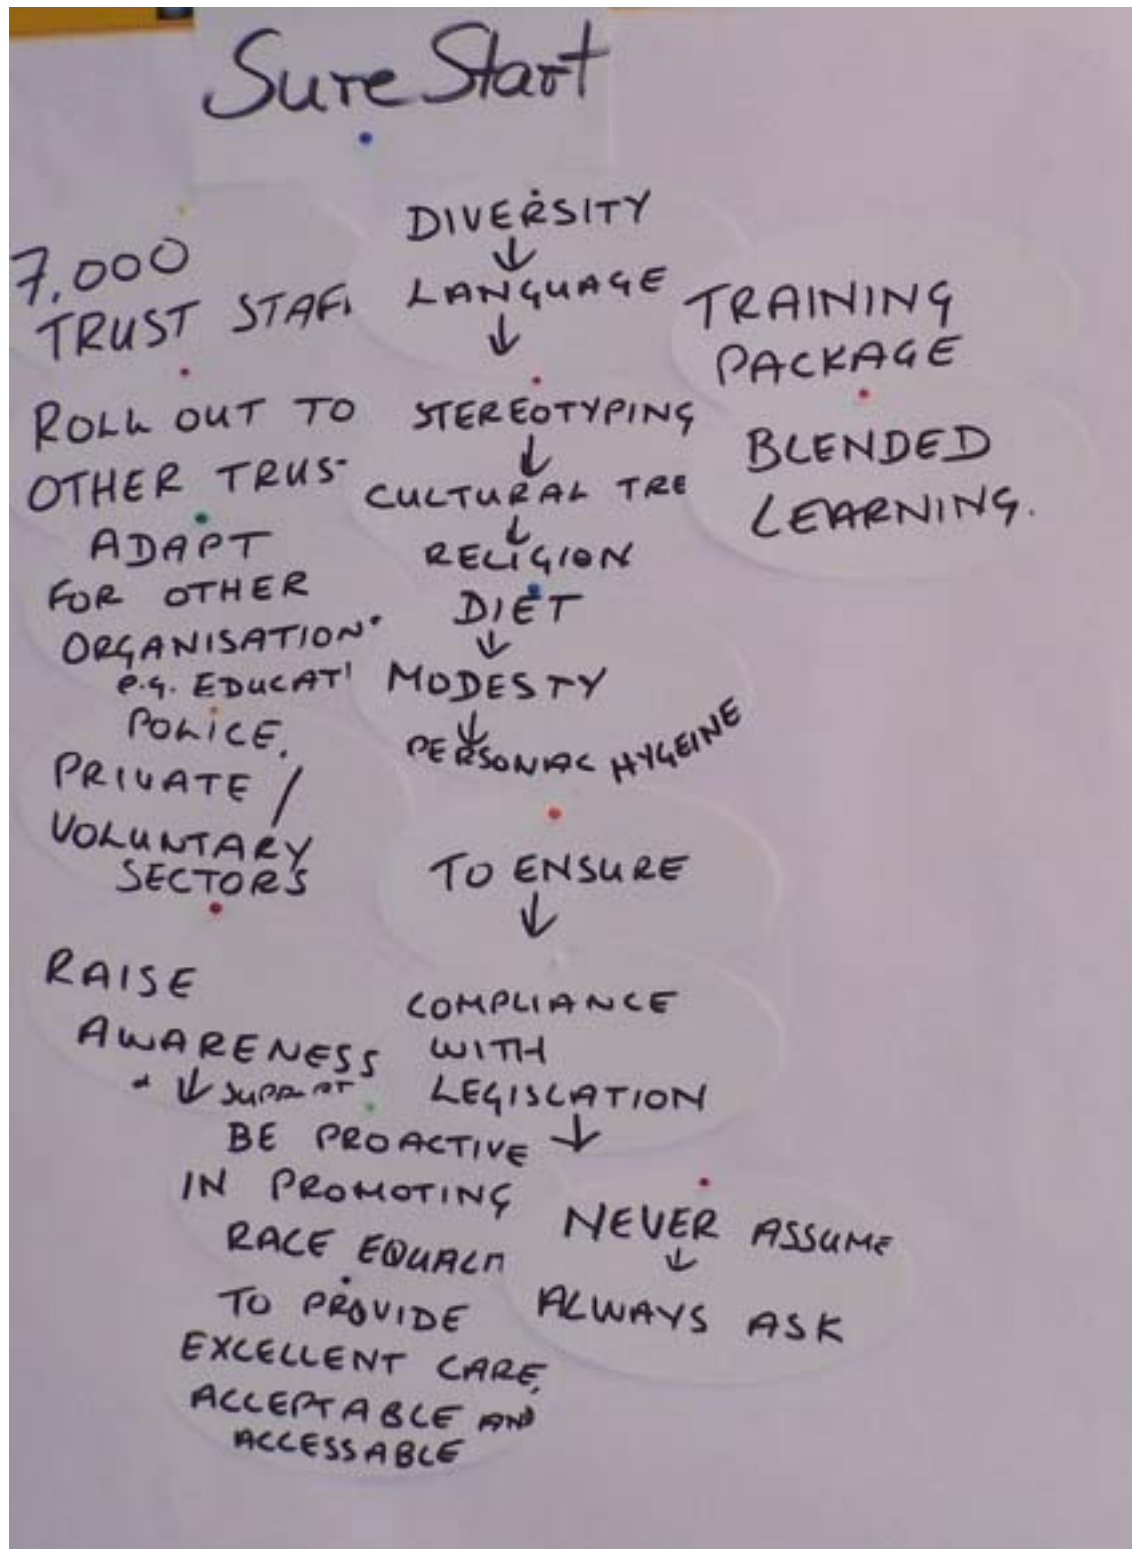 Sure Start
7,000
TRUST STAF
ROLL OUT TO
OTHER TRUS
ADAPT
FOR OTHER
ORGANISATION
e.g. EDUCATI
POLICE,
PRIVATE /
VOLUNTARY
SECTORS
RAISE
AWARENESS
↓ SUPPORT
BE PROACTIVE
IN PROMOTING
RACE EQUALIT
TO PROVIDE
EXCELLENT CARE,
ACCEPTABLE AND
ACCESSABLE
DIVERSITY
↓
LANGUAGE
↓
STEREOTYPING
↓
CULTURAL TRE
↓
RELIGION
DIET
↓
MODESTY
↓
PERSONAL HYGEINE
TO ENSURE
↓
COMPLIANCE
WITH
LEGISLATION
↓
NEVER ASSUME
↓
ALWAYS ASK
TRAINING
PACKAGE
BLENDED
LEARNING.